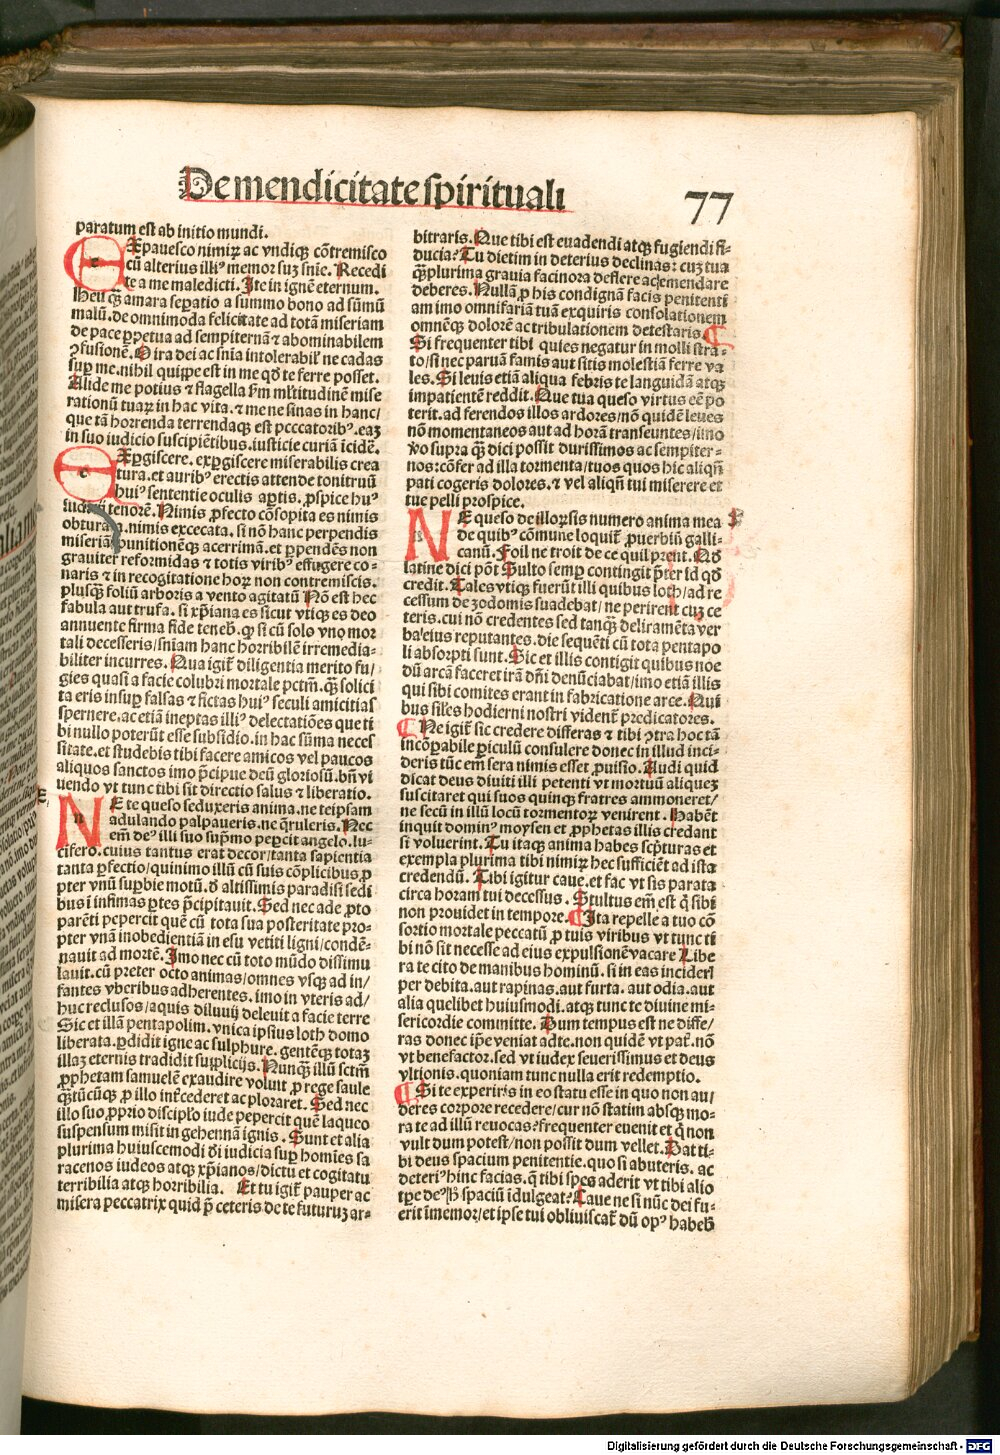 De mendicitate spirituali
77
paratum est ab initio mundi.
Expauesco nimiꝝ ac vndiqꝫ cõtremisco
cũ alterius illiꝰ memor suꝫ snĩe. Recedi
te a me maledicti. Ite in ignẽ eternum.
Heu qꝫ̃ amara seꝑatio a summo bono ad sũmũ
malũ. de omnimoda felicitate ad totã miseriam
de pace ꝑpetua ad sempiternã ⁊ abominabilem
ꝯfusionẽ. O ira dei ac snĩa intolerabil' ne cadas
suꝑ me. nihil quippe est in me qď te ferre posset.
Alide me potius ⁊ flagella ẜm ml̃titudinẽ mise
rationũ tuaꝝ in hac vita. ⁊ me ne sinas in hanc/
que tã horrenda terrendaqꝫ est pcccatoribꝰ. eaꝫ
in suo iudicio suscipiẽtibus. iusticie curiã ĩcidẽ.
Expgiscere. expgiscere miserabilis crea
tura. et auribꝰ erectis attende tonitruũ
huiꝰ sententie oculis aꝑtis. ꝓspice huꝰ
iudicij tenorẽ. Nimis ꝓfecto cõsopita es nimis
obtura. nimis excecata. si nõ hanc perpendis
miseriã punitionẽqꝫ acerrimã. et ꝑpendẽs non
grauiter reformidas ⁊ totis viribꝰ effugere co-
naris ⁊ in recogitatione hoꝝ non contremiscis.
plusqꝫ foliũ arboris a vento agitatũ Nõ est hec
fabula aut trufa. si xp̃iana es sicut vtiqꝫ es deo
annuente firma fide tenebꝭ. ꝙ si cũ solo vno mor
tali decesseris/sniam hanc horribilẽ irremedia-
biliter incurres. Qua igit̃ diligentia merito fu/
gies quasi a facie colubri mortale pctm̃. qꝫ̃ solici
ta eris insuꝑ falsas ⁊ fictas huiꝰ seculi amicitias
spernere. ac etiã ineptas illiꝰ delectatiões que ti
bi nullo poterũt esse subsidio. in hac sũma neces
sitate. et studebis tibi facere amicos vel paucos
aliquos sanctos imo p̃cipue deũ gloriosũ. bñ vi
uendo vt tunc tibi sit directio salus ⁊ liberatio.
E
Ne te queso seduxeris anima. ne teipsam
adulando palpaueris. ne q̃ruleris. Nec
em̃ deꝰ illi suo supmo peꝑcit angelo. lu-
cifero. cuius tantus erat decor/tanta sapientia
tanta ꝑfectio/quinimo illũ cũ suis cõplicibus ꝓ
pter vnũ suꝑbie motũ. đ altissimis paradisi sedi
bus ĩ infimas ꝑtes p̃cipitauit. Sed nec ade ꝓto
parẽti pepercit quẽ cũ tota sua posteritate pro-
pter vnã inobedientiã in esu vetiti ligni/condẽ-
nauit ad mortẽ. Imo nec cũ toto mũdo dissimu
lauit. cũ preter octo animas/omnes vsqꝫ ad in/
fantes vberibus adherentes. imo in vteris ad/
huc reclusos/aquis diluuij deleuit a facie terre
Sic et illã pentapolim. vnica ipsius loth domo
liberata. ꝑdidit igne ac sulphure. gentẽqꝫ totaꝫ
illaꝫ eternis tradidit suppliciis. Nunqꝫ illũ sctm̃
ꝓphetam samuelẽ exaudire voluit ꝓ rege saule
qꝫ̃tũcũqꝫ ꝓ illo int̃cederet ac ploraret. Sed nec
illo suo ꝓprio discipl̃o iude pepercit quẽ laqueo
suspensum misit in gehennã ignis. Sunt et alia
plurima huiuscemodi đi iudicia suꝑ homĩes sa
racenos iudeos atqꝫ xp̃ianos/dictu et cogitatu
terribilia atqꝫ horribilia. Et tu igit̃ pauper ac
misera peccatrix quid p̃ ceteris de te futuruꝫ ar-
bitraris. Que tibi est euadendi atqꝫ fugiendi fi-
ducia? Tu dietim in deterius declinas: cuꝫ tua
qꝫ̃plurima grauia facinora deflere ac emendare
deberes. Nullã ꝓ his condignã facis penitenti
am imo omnifariã tuã exquiris consolationem
omnẽqꝫ dolorẽ ac tribulationem detestaris.
Si frequenter tibi quies negatur in molli stra-
to/si nec paruã famis aut sitis molestiã ferre va
les. Si leuis etiã aliqua febris te languidã atqꝫ
impatientẽ reddit. Que tua queso virtus eẽ po
terit. ad ferendos illos ardores/nõ quidẽ leues
nõ momentaneos aut ad horã transeuntes/imo
v̾o supra qꝫ̃ dici possit durissimos ac sempiter-
nos: cõfer ad illa tormenta/tuos quos hic aliqñ
pati cogeris dolores. ⁊ vel aliqñ tui miserere et
tue pelli prospice.
F
Ne queso de illoꝝ sis numero anima mea
de quibꝰ cõmune loquit̃ ꝓuerbiũ galli-
canũ. Foil ne troit de ce quil prent. Qď
latine dici põt Stulto semꝑ contingit p̃ter id qď
credit. Tales vtiqꝫ fuerũt illi quibus loth/ad re
cessum de zodomis suadebat/ne perirent cuꝫ ce
teris. cui nõ credentes sed tanqꝫ̃ deliramẽta ver
ba eius reputantes. die sequẽti cũ tota pentapo
li absorpti sunt. Sic et illis contigit quibus noe
dũ arcã faceret irã dñi denũciabat/imo etiã illis
qui sibi comites erant in fabricatione arce. Qui
bus sil̃es hodierni nostri vident̃ predicatores.
Ne igit̃ sic credere differas ⁊ tibi ꝯtra hoc tã
incõꝑabile ꝑiculũ consulere donec in illud inci-
deris tũc em̃ sera nimis esset ꝓuisio. Audi quid
dicat deus diuiti illi petenti vt mortuũ aliqueꝫ
suscitaret qui suos quinqꝫ fratres ammoneret/
ne secũ in illũ locũ tormentoꝝ venirent. Habẽt
inquit dominꝰ moysen et ꝓphetas illis credant
si voluerint. Tu itaqꝫ anima habes scp̃turas et
exempla plurima tibi nimiꝝ hec sufficiẽt ad ista
credendũ. Tibi igitur caue. et fac vt sis parata
circa horam tui decessus. Stultus em̃ est q̃ sibi
non prouidet in tempore. Ita repelle a tuo cõ
sortio mortale peccatũ ꝓ tuis viribus vt tunc ti
bi nõ sit necesse ad eius expulsionẽ vacare Libe
ra te cito de manibus hominũ. si in eas incideris
per debita. aut rapinas. aut furta. aut odia. aut
alia quelibet huiusmodi. atqꝫ tunc te diuine mi-
sericordie committe. Dum tempus est ne diffe/
ras donec ip̃e veniat ad te. non quidẽ vt pat̃. nõ
vt benefactor. sed vt iudex seuerissimus et deus
vltionis. quoniam tunc nulla erit redemptio.
Si te experiris in eo statu esse in quo non au/
deres corpore recedere/cur nõ statim absqꝫ mo-
ra te ad illũ reuocas? frequenter euenit et q̃ non
vult dum potest/non possit dum vellet. Dat ti-
bi deus spacium penitentie. quo si abuteris. ac
deteriꝰ hinc facias. q̃ tibi spes aderit vt tibi alio
tp̃e deꝰ ꝑ spaciũ ĩdulgeat? Caue ne si nũc dei fu-
erit ĩmemor/et ipse tui obliuiscat̃ dũ opꝰ habebꝭ
Digitalisierung gefördert durch die Deutsche Forschungsgemeinschaft - DFG